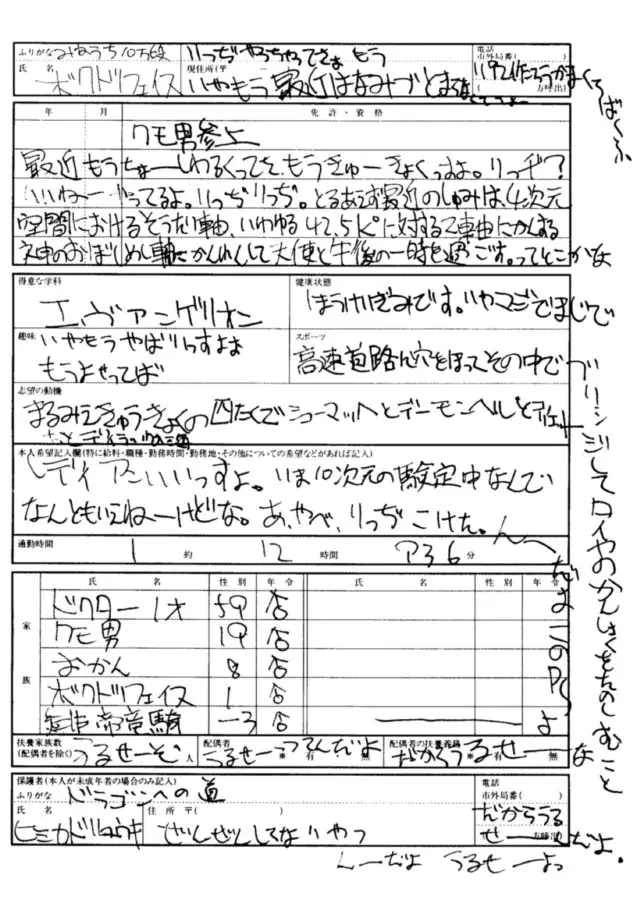 ふりがな みなうち10万段
りっぢやっちゃってさぁ もう
電話
市外局番( )
氏 名 ボクドフェイス
現住所(〒
いやもう最近はなみづとまらなくてさー
( 方呼出)
年 月 免 許・資 格
クモ男参上
最近もうちょーしわるくってさ、もうきゅーきょくっすよ。りっぢ?
いいねー やってるよ。りっぢりっぢ。とりあえず最近のしゅみは4次元
空間におけるそうたい軸、いわゆる42.5Kºに対するZ軸にかんする
ネ申のおぼしめし軸にかんれんして天使と午後の一時を過ごす。ってとこかな
得意な学科
エヴァンゲリオン
健康状態
ほうけいぎみです。いやマジでまじで
趣味 いやもうやばいっすよぉ
もうよせってば
スポーツ
高速道路に穴をほってその中で
ブリッジしてタイヤのかんしょくをたのしむこと
志望の動機
まるみえきゅうきょくの四たくでシューマッハとデーモンヘルと
本人希望記入欄(特に給料・職種・勤務時間・勤務地・その他についての希望などがあれば記入)
レディアンいいっすよ。いま10次元の験定中なんでい
なんともいえねーけどな。あ、やべ、りっぢこけた。んー
通勤時間 1 約 12 時間 アろ6 分
氏 名 性 別 年 令 氏 名 性 別 年 令
家 族
ドクター1才 59 店
クモ男 19 店
おかん 8 店
ボクドフェイス 1 店
帝竜騎 -3 店
だよこのPCよ
扶養家族数
(配偶者を除く) うるせーぞ 人
配偶者
※ 有 無 うるせーつってんだよ
配偶者の扶養義務
※ 有 無 だからうるせーな
保護者(本人が未成年者の場合のみ記入)
ふりがな ドラゴンへの道
電話
市外局番( )
だからうる
せーんだよ。
氏 名 ヒミカドリュウキ
住 所 〒( )
ぜんぜんしてないやつ
方呼出)
んーだよ うるせーよっ